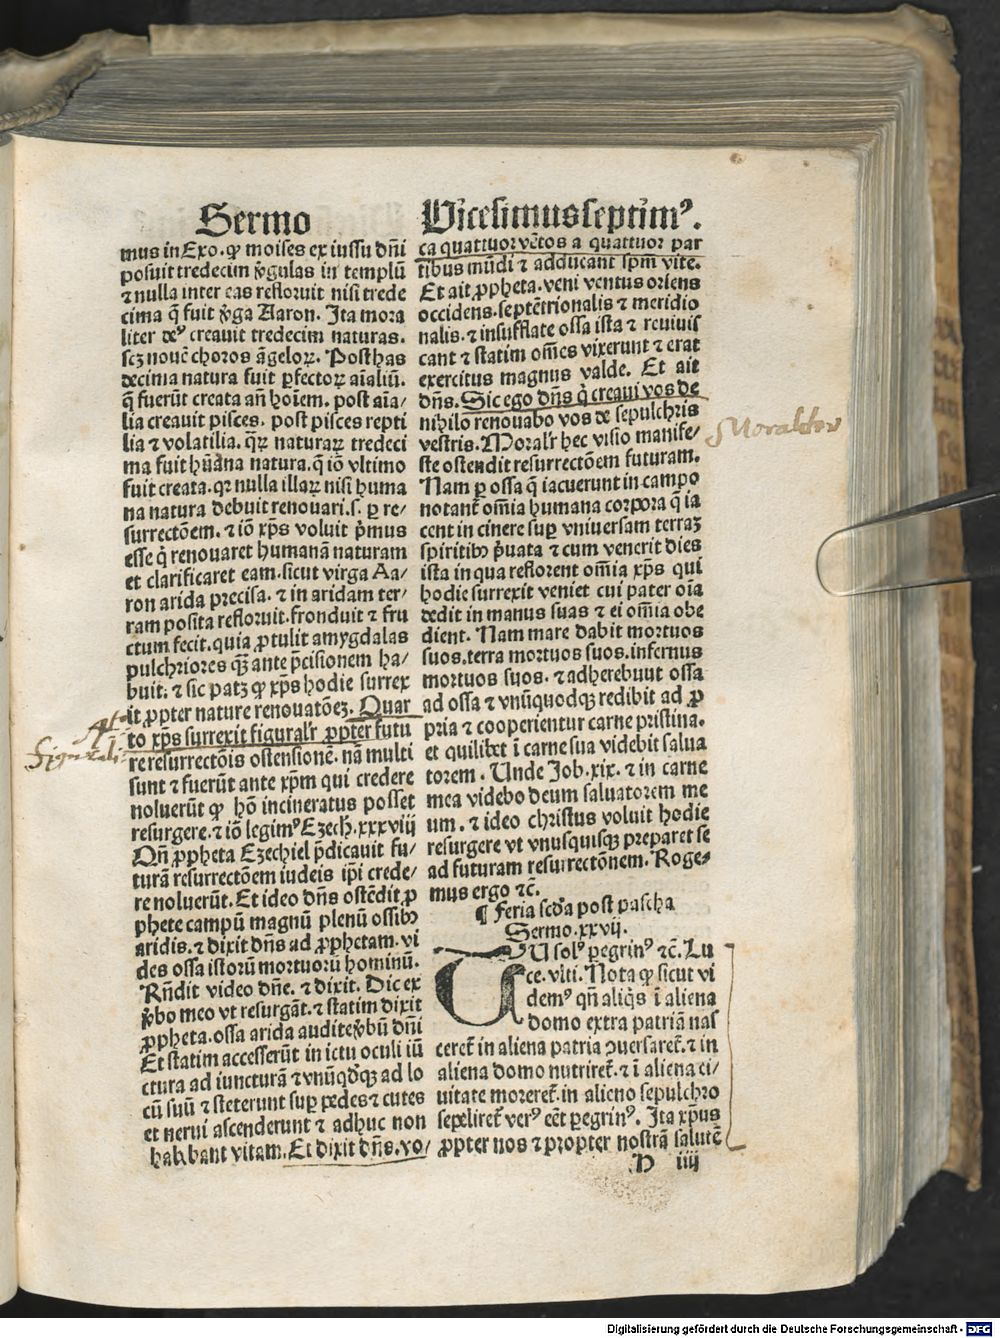 Sermo
mus in Exo. ꝙ moises ex iussu dñi
posuit tredecim v̾gulas in templū
⁊ nulla inter eas refloruit nisi trede
cima q̄ fuit v̾ga Aaron. Ita mora
liter deꝰ creauit tredecim naturas.
scꝫ nouē choros āgeloꝝ. Post has
decima natura fuit ꝑfectoꝝ aīaliū.
q̄ fuerūt creata an̄ hoīem. post aīa/
lia creauit pisces. post pisces repti
lia ⁊ volatilia. qꝝ naturaꝝ tredeci
ma fuit hūāna natura. q̄ iō vltimo
fuit creata. qꝛ nulla illaꝝ nisi huma
na natura debuit renouari .s. ꝑ re/
surrectōem. ⁊ iō xp̄s voluit p̄mus
esse q̇ renouaret humanā naturam
et clarificaret eam. sicut virga Aa/
ron arida precisa. ⁊ in aridam ter/
ram posita refloruit. fronduit ⁊ fru
ctum fecit. quia ꝓtulit amygdalas
pulchriores qꝫ ante p̄cisionem ha/
buit: ⁊ sic patꝫ ꝙ xp̄s hodie surrex
it ꝓpter nature renouatōeꝫ. Quar
to xp̄s surrexit figuralr̄ ꝓpter futu
re resurrectōis ostensionē. nā multi
sunt ⁊ fuerūt ante xp̄m qui credere
noluerūt ꝙ hō incineratus posset
resurgere. ⁊ iō legimꝰ Ezech̄. xxxviij
Qn̄ ꝓpheta Ezechiel p̄dicauit fu/
turā resurrectōem iudeis ip̄i crede/
re noluerūt. Et ideo dn̄s ostēdit ꝓ
phete campū magnū plenū ossibꝫ
aridis. ⁊ dixit dn̄s ad ꝓphetam. vi
des ossa istorū mortuorū hominū.
Rn̄dit video dn̄e. ⁊ dixit. Dic ex
v̾bo meo vt resurgāt. ⁊ statim dixit
ꝓpheta. ossa arida audite v̾bū dn̄i
Et statim accesserūt in ictu oculi iū
ctura ad iuncturā ⁊ vnūqd̛qꝫ ad lo
cū suū ⁊ steterunt suꝑ pedes ⁊ cutes
et nerui ascenderunt ⁊ adhuc non
habebant vitam. Et dixit dn̄s. vo/
Figurali
Vicesimusseptimꝰ.
ca quattuor vētos a quattuor par
tibus mūdi ⁊ adducant spm̄ vite.
Et ait ꝓpheta. veni ventus oriens
occidens. septētrionalis ⁊ meridio
nalis. ⁊ insufflate ossa ista ⁊ reuiuis
cant ⁊ statim om̄es vixerunt ⁊ erat
exercitus magnus valde. Et ait
dn̄s. Sic ego dn̄s q̇ creaui vos de
nihilo renouabo vos de sepulchris
vestris. Moralr̄ hec visio manife/
ste ostendit resurrectōem futuram.
Nam ꝑ ossa q̄ iacuerunt in campo
notant̃ om̄ia humana corpora q̄ ia
cent in cinere suꝑ vniuersam terraꝫ
spiritibꝫ p̄uata ⁊ cum venerit dies
ista in qua reflorent om̄ia xp̄s qui
hodie surrexit veniet cui pater oīa
dedit in manus suas ⁊ ei om̄ia obe
dient. Nam mare dabit mortuos
suos. terra mortuos suos. infernus
mortuos suos. ⁊ adherebuut ossa
ad ossa ⁊ vnūquodqꝫ redibit ad ꝓ
pria ⁊ cooperientur carne pristina.
et quilibet ī carne sua videbit salua
torem. Unde Job. xix. ⁊ in carne
mea videbo deum saluatorem me
um. ⁊ ideo christus voluit hodie
resurgere vt vnusquisqꝫ preparet se
ad futuram resurrectōnem. Roge/
mus ergo ⁊c̄.
¶ Feria scd̛a post pascha
Sermo. xxvij.
TU solꝰ peregrinꝰ ⁊c̄. Lu
ce. vlti. Nota ꝙ sicut vi
demꝰ qn̄ aliq̇s ī aliena
domo extra patriā nas
ceret̃ in aliena patria ꝯuersaret̃. ⁊ in
aliena domo nutriret̃. ⁊ ī aliena ci/
uitate moreret̃. in alieno sepulchro
sepeliret̃ verꝰ eēt peregrinꝰ. Ita xp̄us
ꝓpter nos ⁊ propter nostrā salutē
Moraliter
D iiij
Digitalisierung gefördert durch die Deutsche Forschungsgemeinschaft - DFG